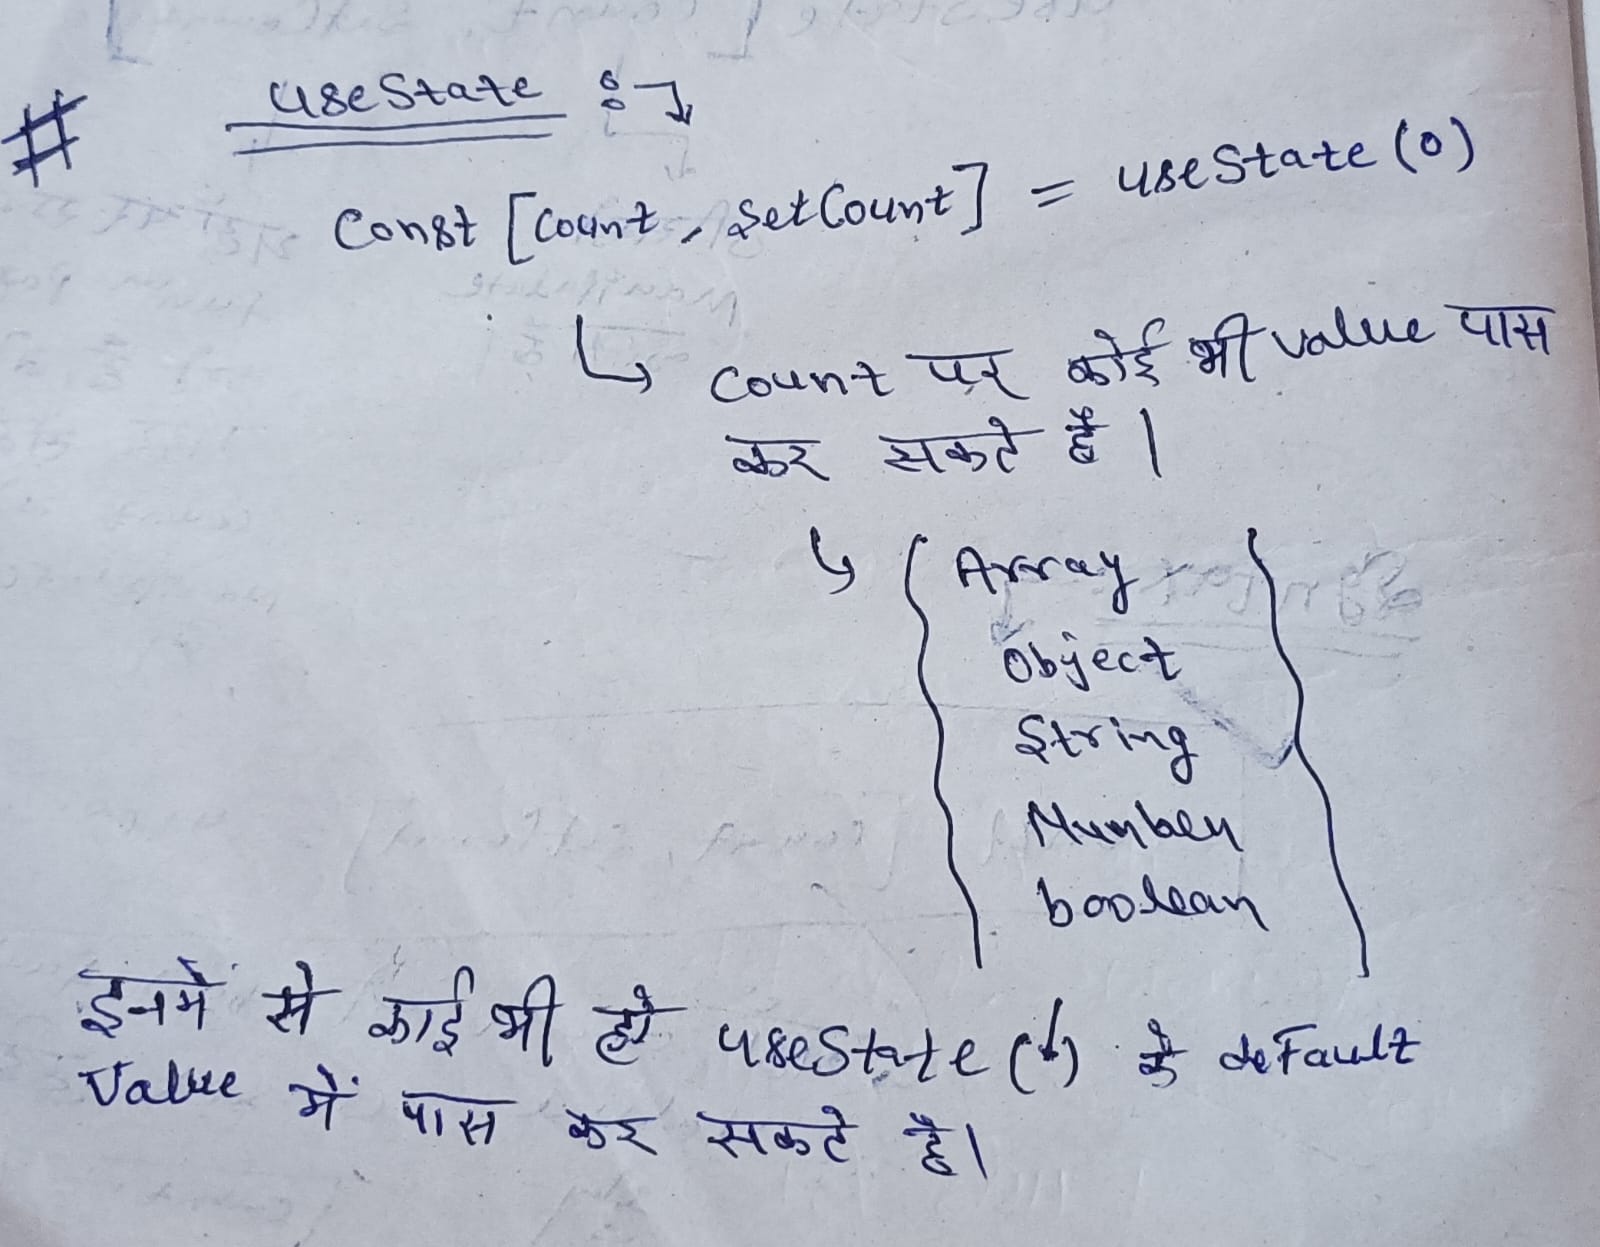 # useState :→
Const [Count, SetCount] = useState (0)
↳ Count पर कोई भी value पास
कर सकते है।
↳ ( Array )
Object
String
Number
boolean
इनमें से काई भी हो useState (↓) के deFault
Value में पास कर सकते है।